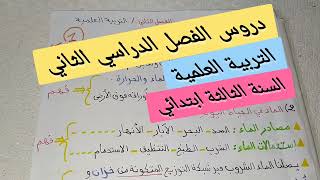 الفصل الثاني / التربية العلمية
دروس الفصل الدراسي الثاني
التربية العلمية
السنة الثالثة ابتدائي
والحرارة
فهم
مصادر الماء: السد - البحر - الآبار - الأنهار
استعمالات الماء: الشرب - الطبخ - التنظيف - الاستحمام
يصلنا الماء الشروب عبر شبكة التوزيع المتكونة من خزان و